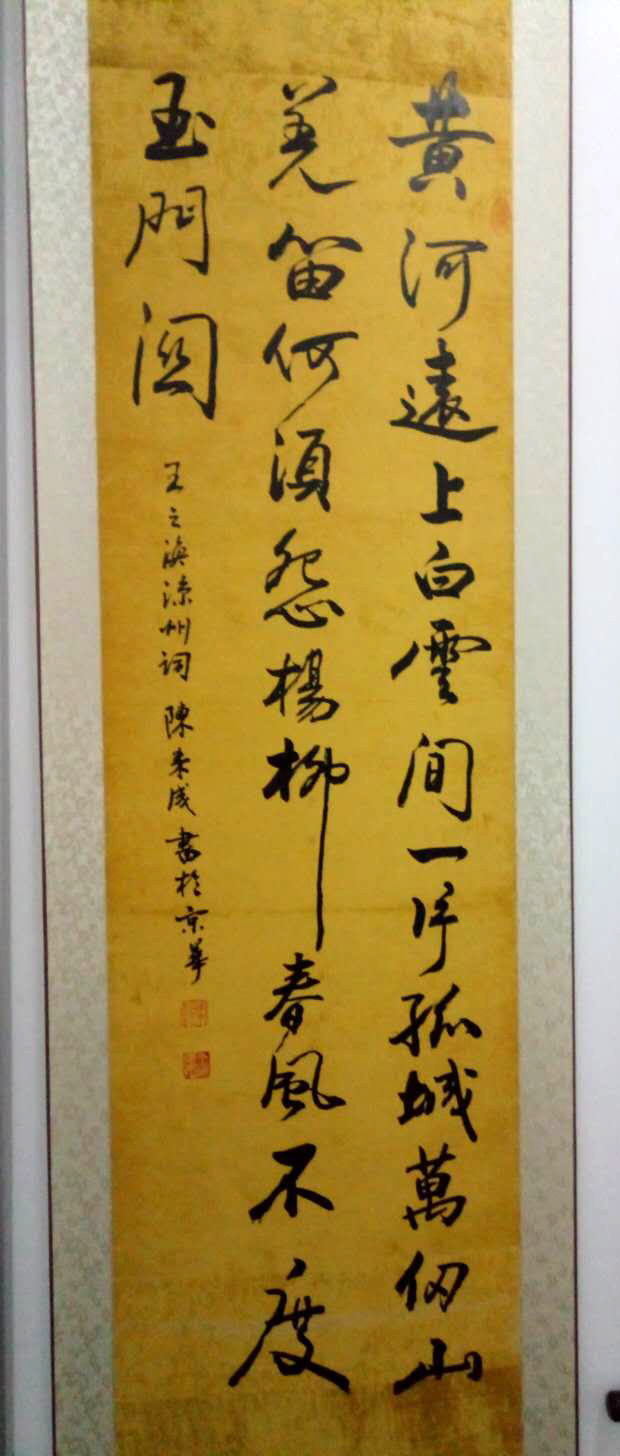 黄河遠上白雲間一片孤城萬仞山
羌笛何須怨楊柳春風不度
玉門関
王之渙涼州詞 陳来成書於京華